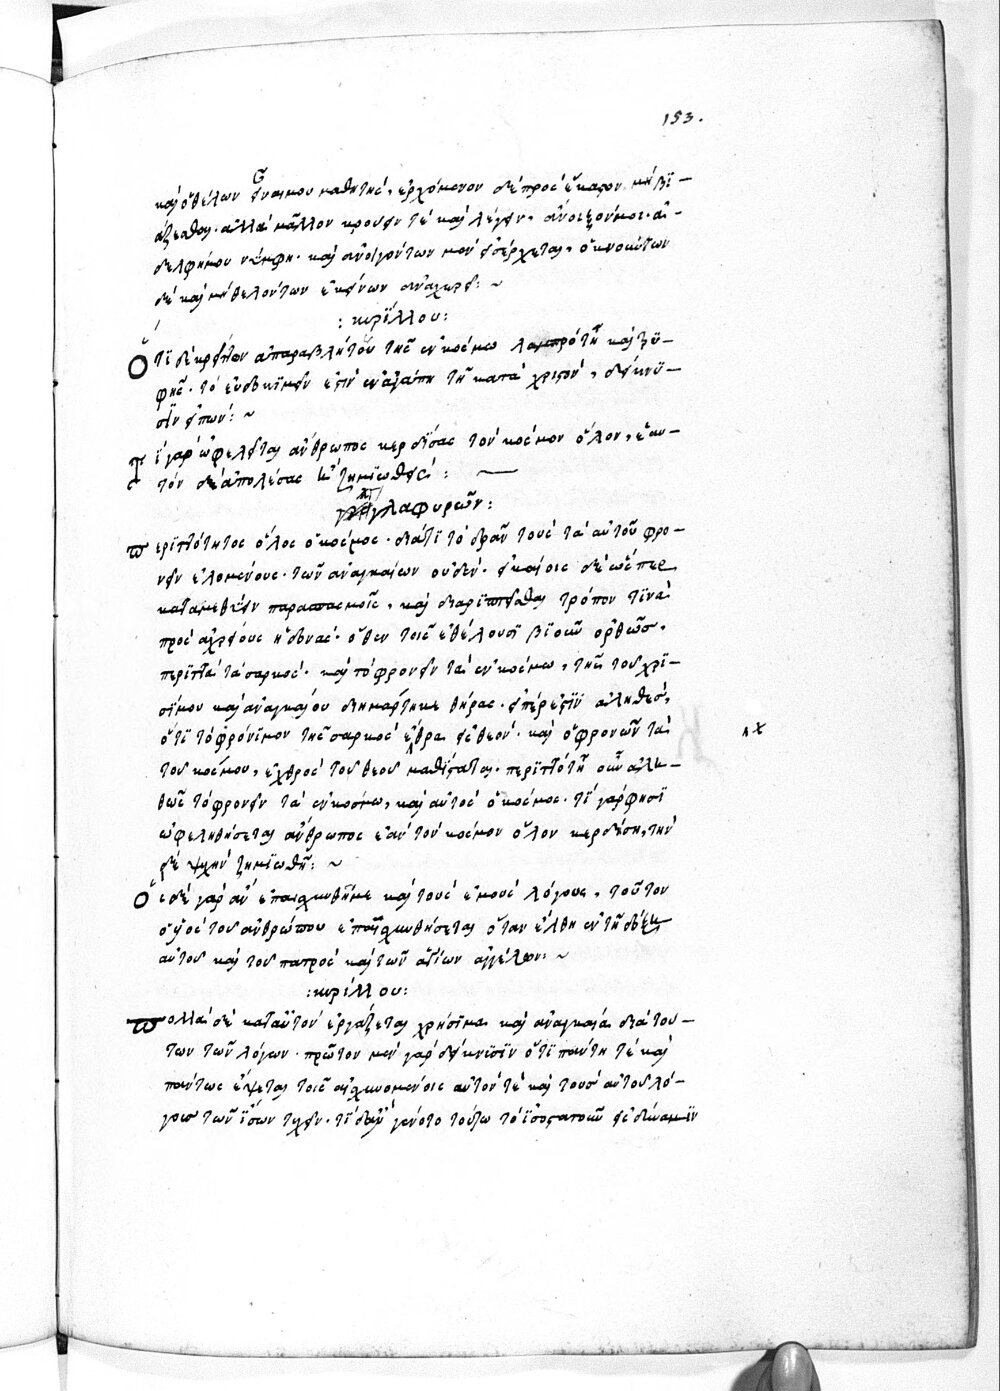 153.
καὶ ὁ θέλων εἶναι μου μαθητής, ἐρχόμενον δὲ πρὸς ἕκαστον μὴ βϊ-
άζεσθαι· ἀλλὰ μᾶλλον κρούειν τὲ καὶ λέγειν, ἄνοιξόν μοι ἀ-
δελφή μου νύμφη· καὶ ἀνοιγόντων μὲν εἰσέρχεται, ὀκνούντων
δὲ καὶ μὴ θελόντων ἐκείνων ἀναχωρεῖ: ~
: κυρίλλου:
Ὅτϊ δὲ κρεῖττον ἀπαραβλήτου τῆς ἐν κόσμω λαμπρότητος καὶ τρυ-
φῆς· τὸ εὐδοκϊμεῖν ἐστὶν ἐν ἀγάπη τῆ κατὰ χριστόν, δείκνυ-
σϊν εἰπών: ~
Τί γὰρ ὠφελεῖται ἄνθρωπος κερδήσας τὸν κόσμον ὅλον, ἑαυ-
τὸν δὲ ἀπολέσας ἢ ζημϊωθείς: ~
γλαφυρῶν:
Περιττότητος ὅλος ὁ κόσμος· διάτϊ τὸ δρᾶν τοὺς τὰ αὐτοῦ φρο-
νεῖν ἑλομένους· τῶν ἀναγκαίων οὐδὲν·
πρὸς αἰσχροὺς ἡδονάς· ὅθεν τοῖς ἐθέλουσϊ βϊοῦν ὀρθῶς,
περιττὰ τὰ σαρκός· καὶ τὸ φρονεῖν τὰ ἐν κόσμω, τῆς τοῦ χρη-
σίμου καὶ ἀναγκαίου διημάρτηκε θήρας· εἴπερ ἐστϊν ἀληθές,
ὅτϊ τὸ φρόνϊμον τῆς σαρκὸς ἔχθρα εἰς θεόν· καὶ ὁ φρονῶν τὰ
τοῦ κόσμου, ἐχθρὸς τοῦ θεοῦ καθίσταται· περϊττότης οὖν ἀλη-
θῶς τὸ φρονεῖν τὰ ἐν κόσμω, καὶ αὐτὸς ὁ κόσμος· τί γὰρ φησϊ
ὠφεληθήσεται ἄνθρωπος ἐὰν τὸν κόσμον ὅλον κερδήση, τὴν
δὲ ψυχὴν ζημϊωθῆ: ~
Ὃς δὲ γὰρ ἂν ἐπαισχυνθῆ με καὶ τοὺς ἐμοὺς λόγους, τοῦτον
ὁ υἱὸς τοῦ ἀνθρώπου ἐπαισχυνθήσεται ὅταν ἔλθη ἐν τῆ δόξη
αὐτοῦ καὶ τοῦ πατρὸς καὶ τῶν ἁγίων ἀγγέλων: ~
:κυρίλλου:
Πολλὰ δὲ κατὰ ταυτὸν ἐργάζεται χρήσϊμα καὶ ἀναγκαῖα διὰ τού-
των τῶν λόγων· πρῶτον μὲν γὰρ δείκνυσϊν ὅτϊ πάντη τὲ καὶ
πάντως ἕψεται τοῖς αἰσχυνομένοις αὐτόν τε καὶ τοὺς αὐτοῦ λό-
γους τῶν ἴσων τυχεῖν· τϊ δ' ἂν γένοιτο τούτω τὸ ἰσοστατοῦν εἰς δύναμϊν